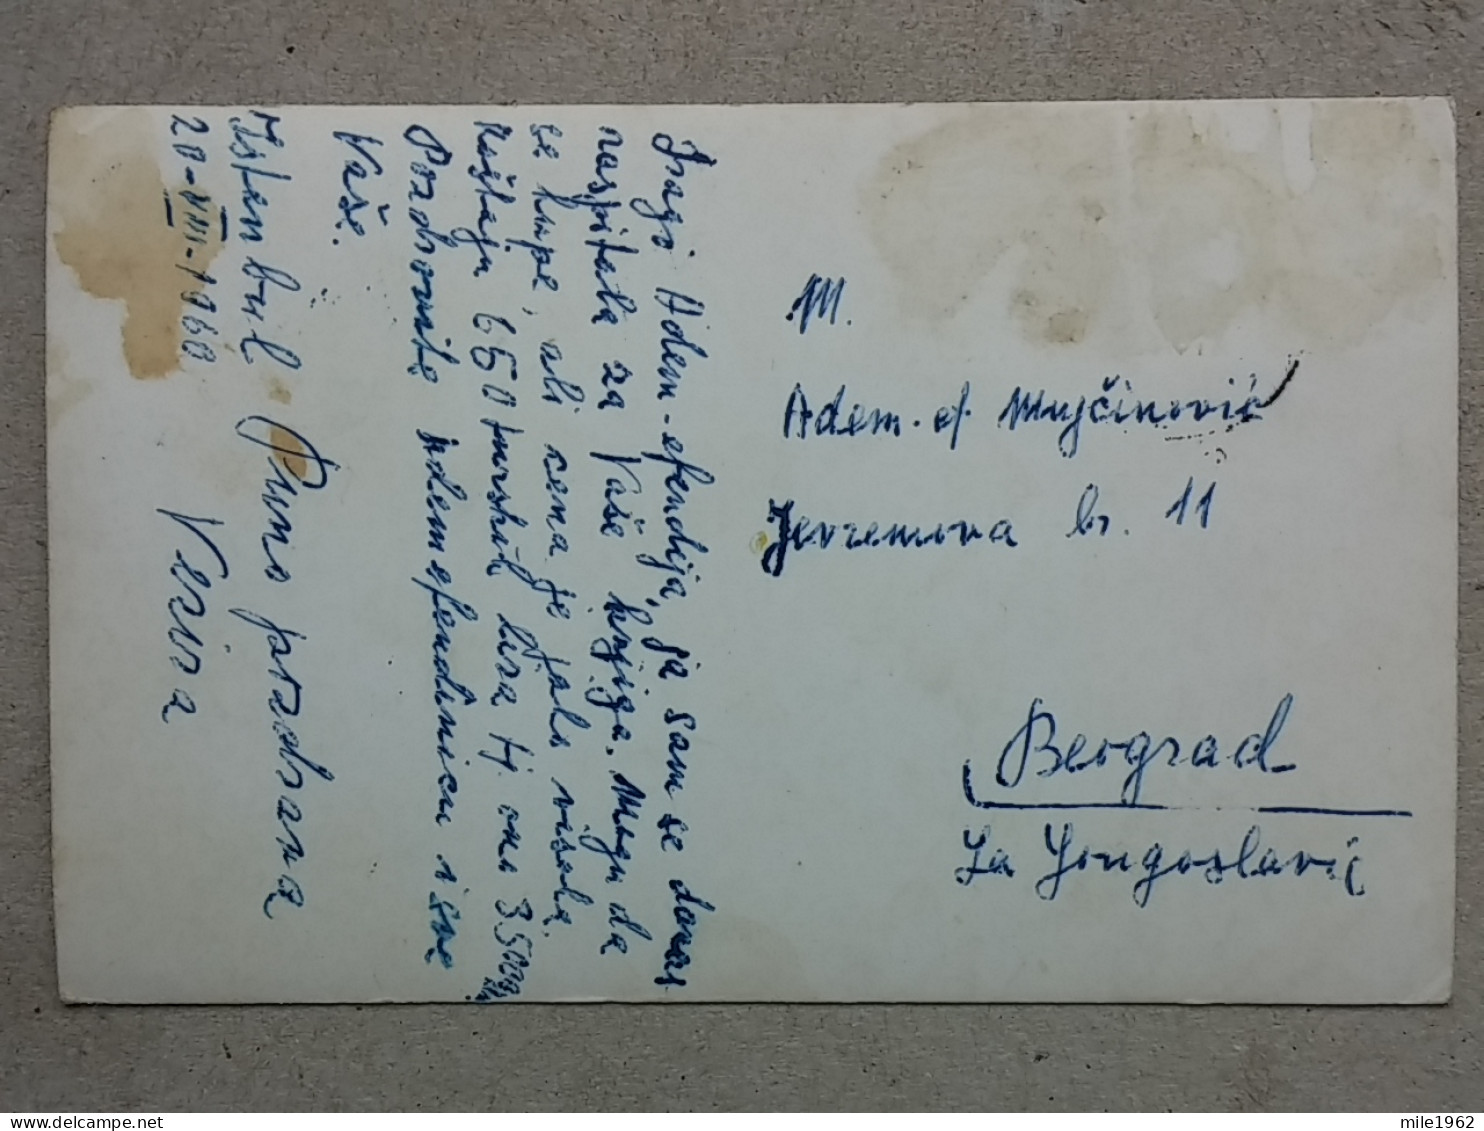 Dragi Adem-efendija, ja sam se danas
raspitala za Vaše knjige. Mogu da
se kupe, ali cena je jako visoka.
Koštaju 650 turskih lira tj. oko 35000
Pozdravite Ademefendinicu i sve
Vaše.
Istanbul
20-VIII-1960
Puno pozdrava
M.
Adem. ef Mujčinović
Jevremova br. 11
Beograd
La Yougoslavie
mile1962